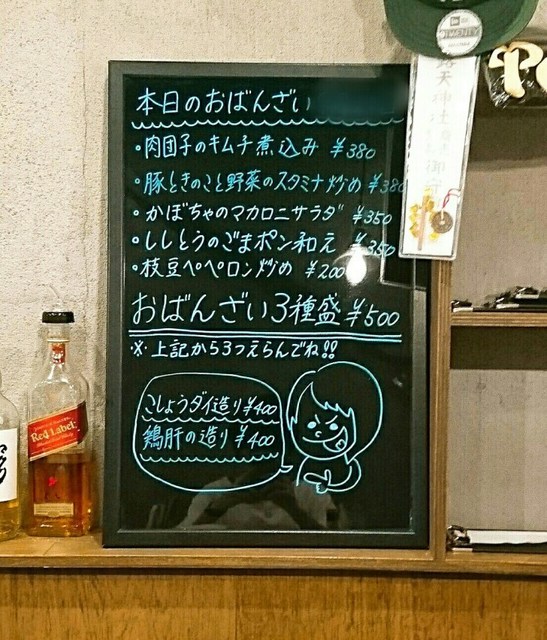 本日のおばんざい
・肉団子のキムチ煮込み ¥380
・豚ときのこと野菜のスタミナ炒め ¥380
・かぼちゃのマカロニサラダ ¥350
・ししとうのごまポン和え ¥350
・枝豆ペペロン炒め ¥200
おばんざい3種盛 ¥500
※上記から3つえらんでね!!
こしょうダイ造り ¥400
鶏肝の造り ¥400
Red Label
NEW ERA
天神社